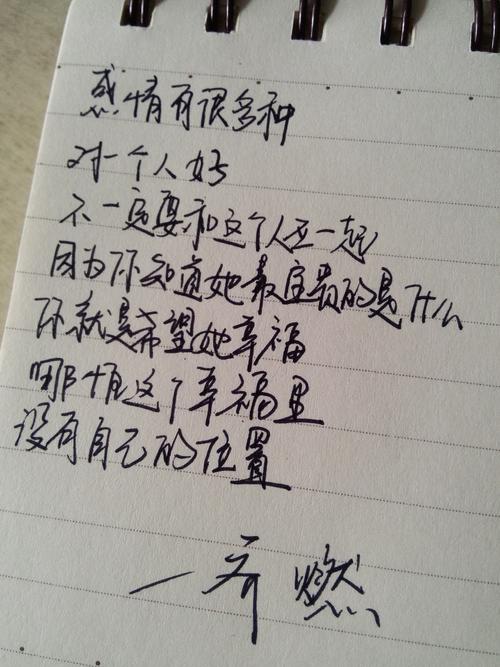 感情有很多种
对一个人好
不一定要和这个人在一起
因为你知道她最宝贵的是什么
你就是希望她幸福
哪怕这个幸福里
没有自己的位置
一齐燃